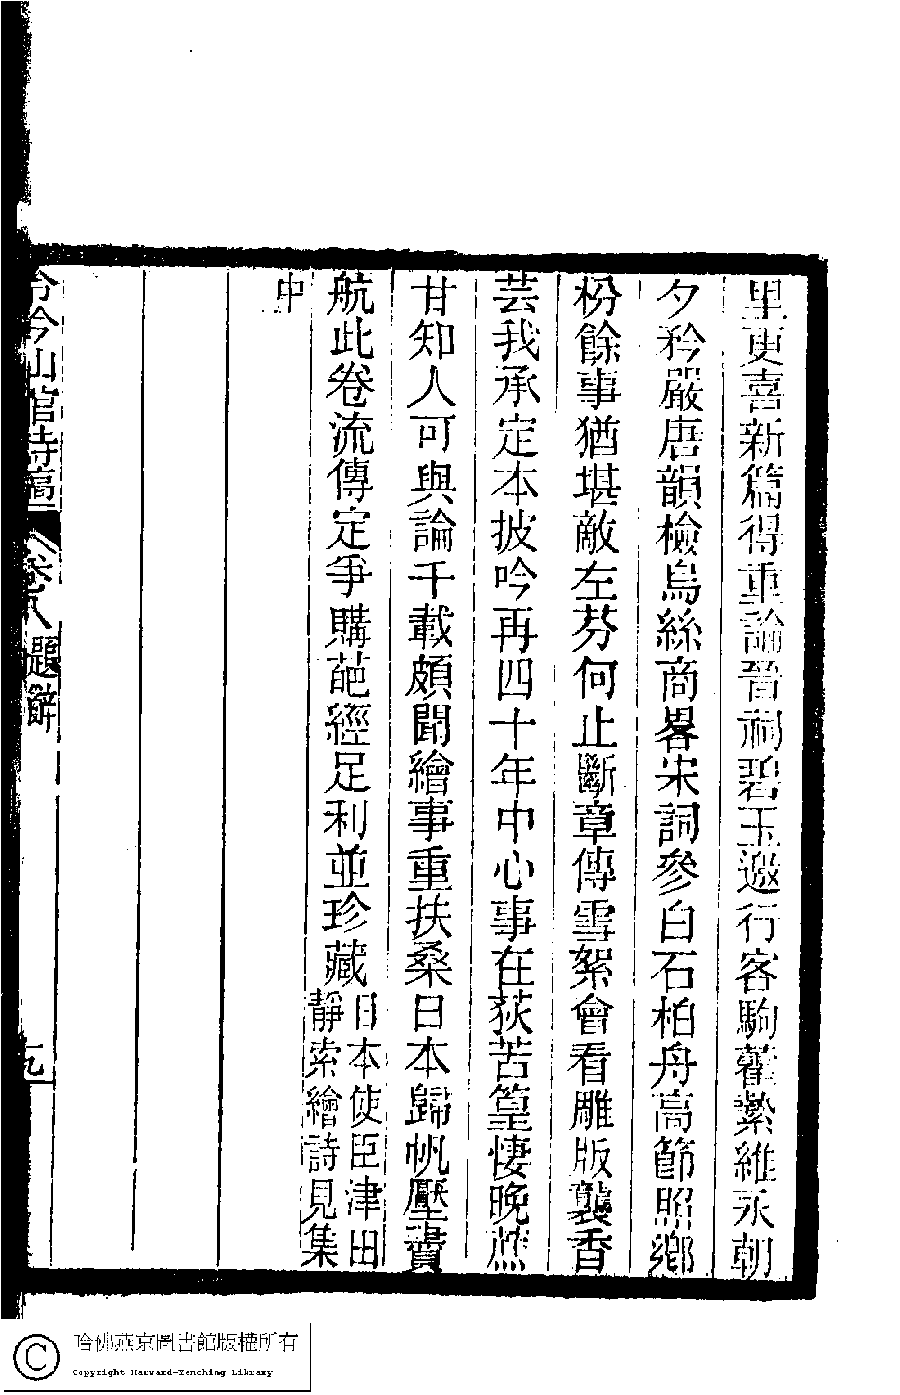 里更喜新篇得重論晉祠碧玉邀行客駒藿縶維永朝
夕矜嚴唐韻檢烏絲商畧宋詞參白石柏舟高節照鄉
枌餘事猶堪敵左芬何止斷章傳雪絮會看雕版襲香
芸我承定本披吟再四十年中心事在荻苦篁悽晚蔗
甘知人可與論千載頗聞繪事重扶桑日本歸帆壓賣
航此卷流傳定爭購葩經足利並珍藏
日本使臣津田
靜索繪詩見集
中
冷今山館詩稿
卷八
題辭
九
哈佛燕京圖書館版權所有
Copyright Harvard-Yenching Library